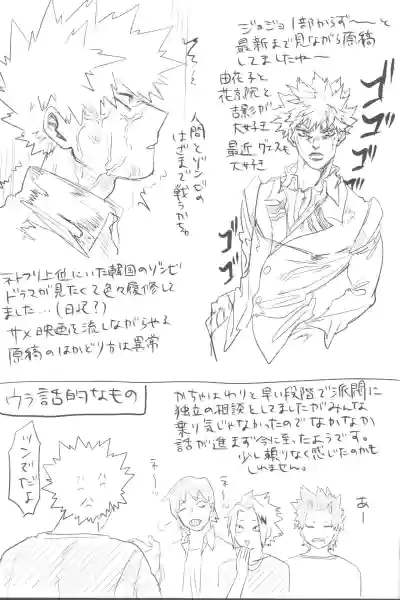 ジョジョ1部からず〜〜っと
最新まで見ながら原稿
してましたね〜
由花子と
花京院と
吉影が
大好き
最近グェスも
大好き
ゴゴゴ
ゴゴゴ
人間とゾンビの
はざまで戦うかち。
ネトフリ上位にいた韓国のゾンビ
ドラマが見たくて色々履修して
ました…(日記?)
サメ映画を流しながらやる
原稿のはかどり方は異常
ウラ話的なもの
かちゃはわりと早い段階で派閥に
独立の相談としてましたがみんな
乗り気じゃなかったのでなかなか
話が進まず今に至ったようです。
少し頼りなく感じたのかも
しれません。
ツンでだよ
ネー
ネー
あー